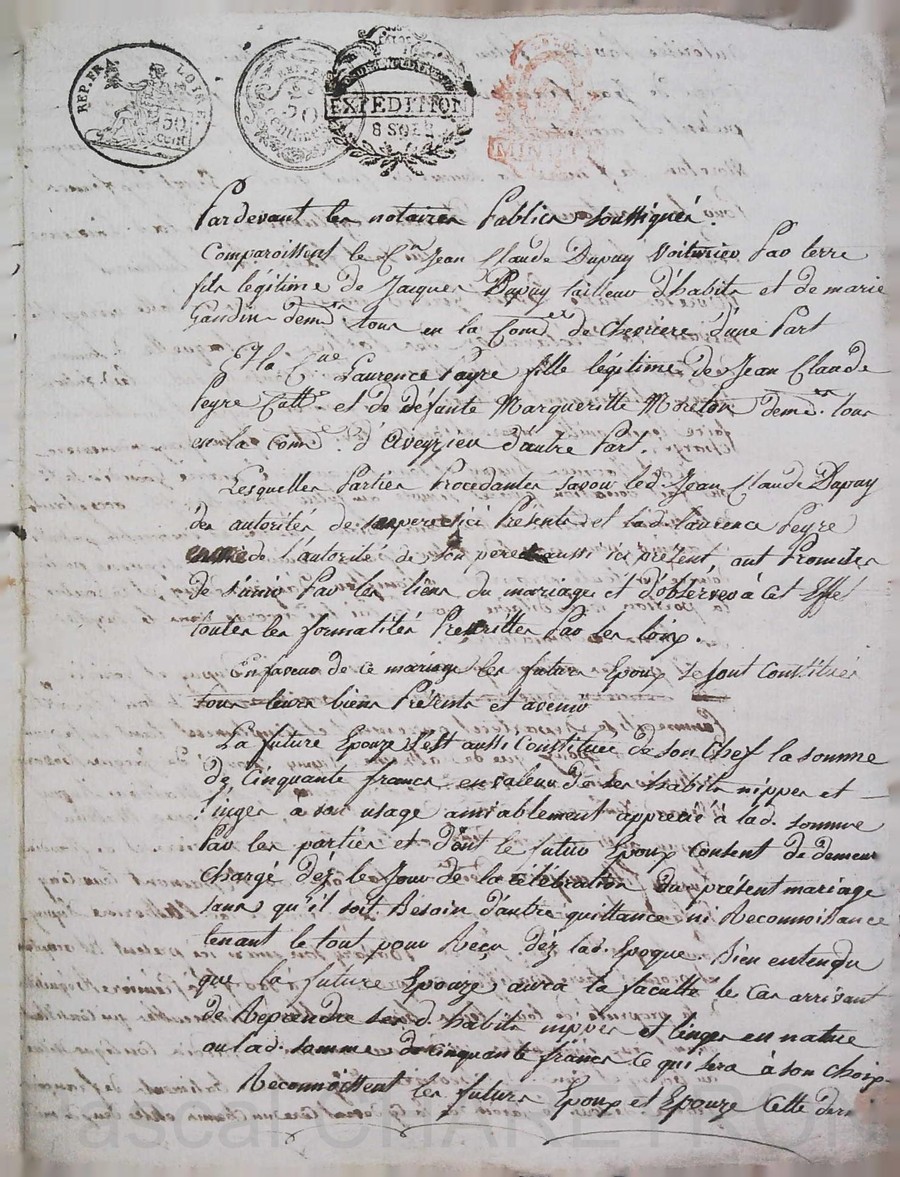 REP. FR. LOIRE.
50 cent
REP. F
50
centimes
EXPEDITION
8 S
MINUTE
Pardevant les notaires Publics soussignés.
Comparoissent le Cen Jean Claude Dupuy Voiturier Par terre
fils légitime de Jacques Dupuy tailleur d'habits et de marie
Gaudin demts tous en la Come de Cheviere d'une Part
Et la Cne Laurence Payre fille légitime de Jean Claude
Peyre Cultr. et de défunte Margueritte Moreton demts. tous
en la Come d'Aveyzieu d'autre Part.
Lesquelles Parties Procedantes savoir led. Jean Claude Dupuy
des autorités de ici Présents et lad. laurence Peyre
de l'autorité de son pere aussi ici présent, ont Promises
de s'unir Par les liens du mariage et d'observer à cet Effet
toutes les formalités Prescrittes Par les loix.
En faveur de ce mariage les futurs Epoux se sont Constitués
tous leurs biens Présents et avenir
La future Epouze s'est aussi Constituée de son Chef la somme
de Cinquante francs en valeur de ses habits nippes et
linges à son usage amiablement apprecié à lad. somme
Par les parties et dont le futur Epoux Consent de demeur
Chargé déz le Jour de la célébration du présent mariage
sans qu'il soit Besoin d'autre quittance ni Reconnoissance
tenant le tout pour Reçu déz lad. Epoque. Bien entendu
que la future Epouze aura la faculté le Cas arrivant
de Reprendre sesd. habits nippes et linges en nature
ou lad. somme de cinquante francs ce qui sera à son Choix.
Reconnoissent les futurs Epoux et Epouze Cette dern
Pascal CHAREYRON